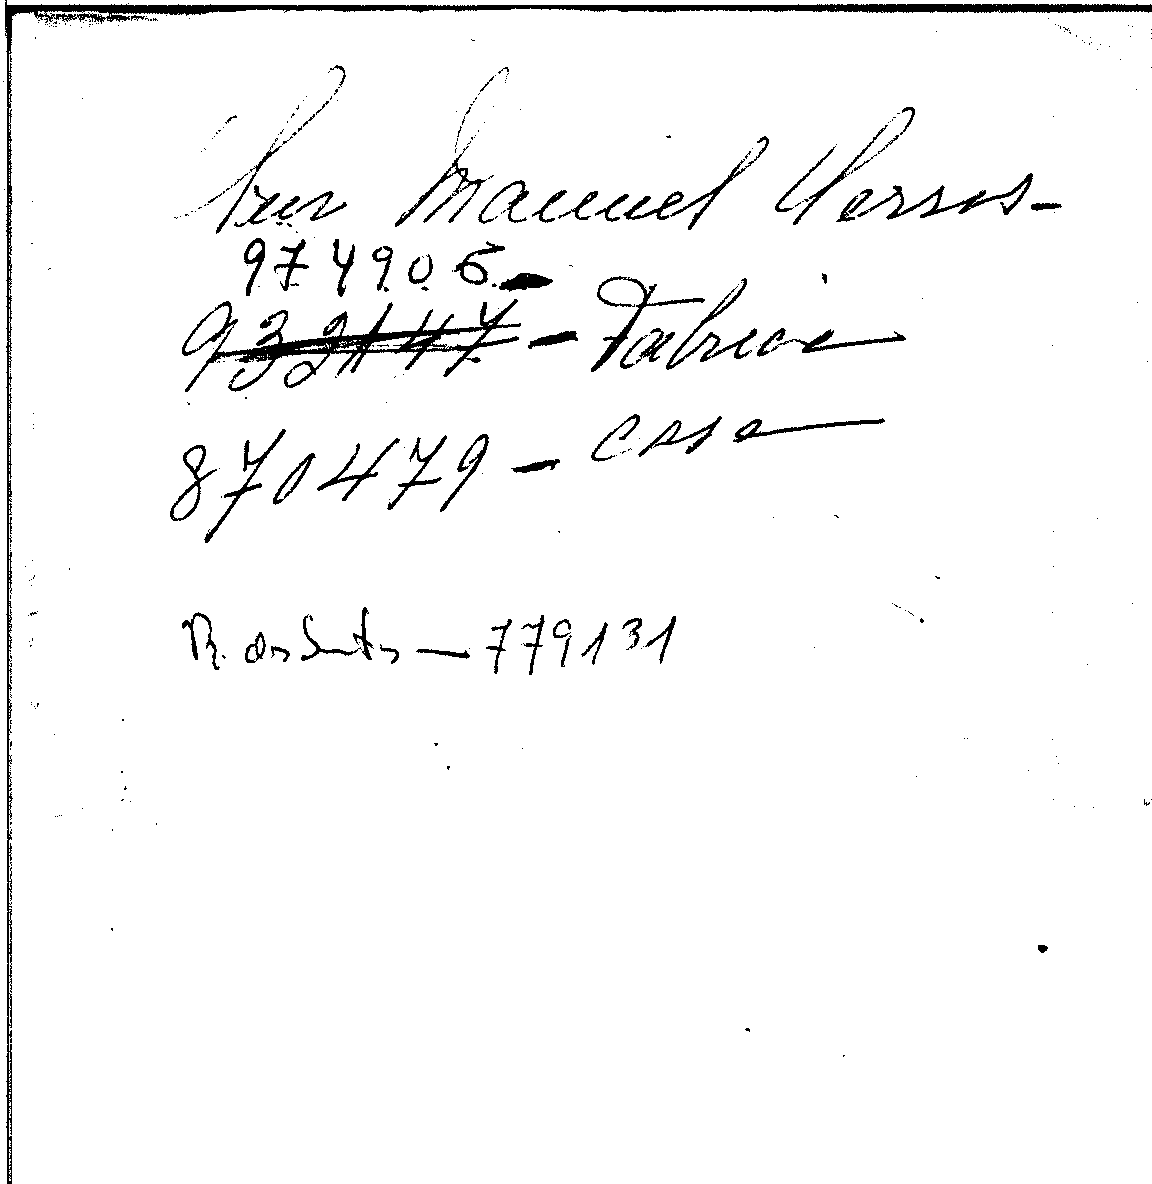 Manuel
974906 -
932147 - Fabrica
870479 - casa
R. dos Santos — 779131